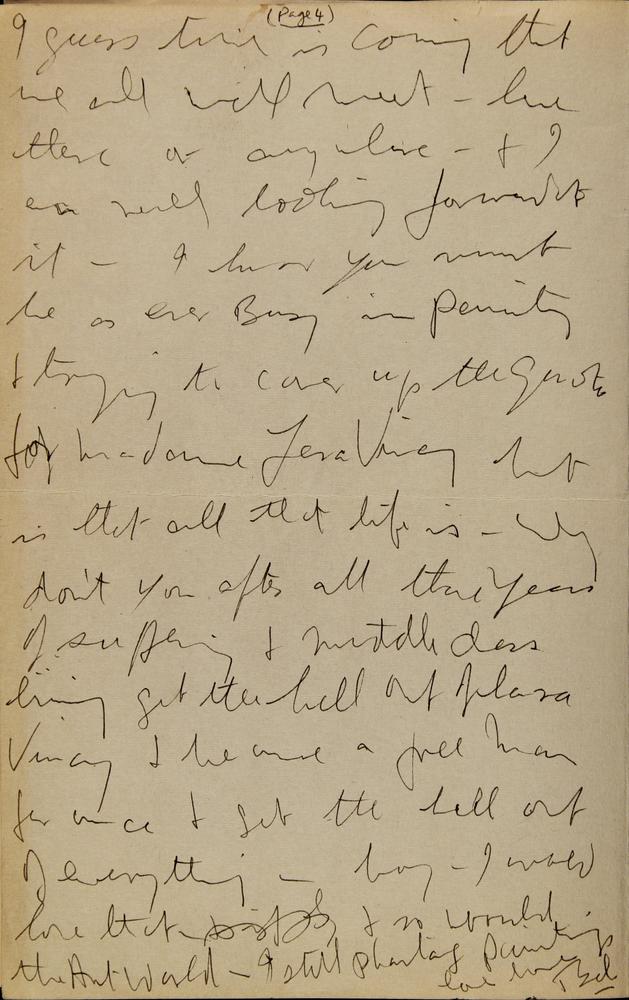 (Page 4)
I guess time is coming that
we all will meet - here
there or anywhere - & I
am really looking forward to
it - I know you must
be as ever Busy in Painting
& trying to cover up the
for madame Vinay but
is that all that life is - Why
don't you after all these years
of suffering & middle class
living get the hell out of
Vinay & become a free man
for once & get the hell out
of everything - boy - I would
love that - & so would
the Art World - I still painting
love